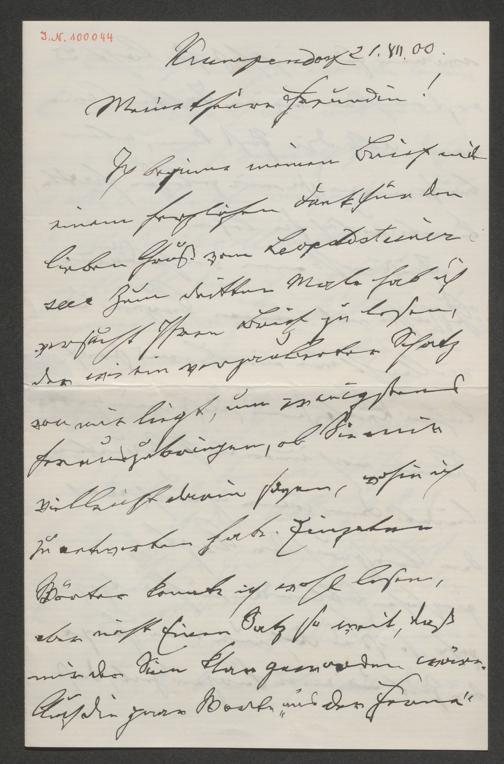 J.N. 100044
Krumpendorf 21.VII.00.
Meine theure Freundin!
Ich beginne meinen Brief mit
einem herzlichen Dank für den
lieben Gruß vom Leopoldsteiner
see. Zum dritten Male hab ich
versucht Ihren Brief zu lesen,
der wie ein verzauberter Schatz
vor mir liegt, um wenigstens
herauszubringen, ob Sie mir
vielleicht darin sagen, wohin ich
zu antworten habe. Einzelne
Wörter konnte ich wohl lesen,
aber nicht Einen Satz so weit, daß
mir der Sinn klar geworden wäre.
Auch die paar Worte „aus der Ferne“